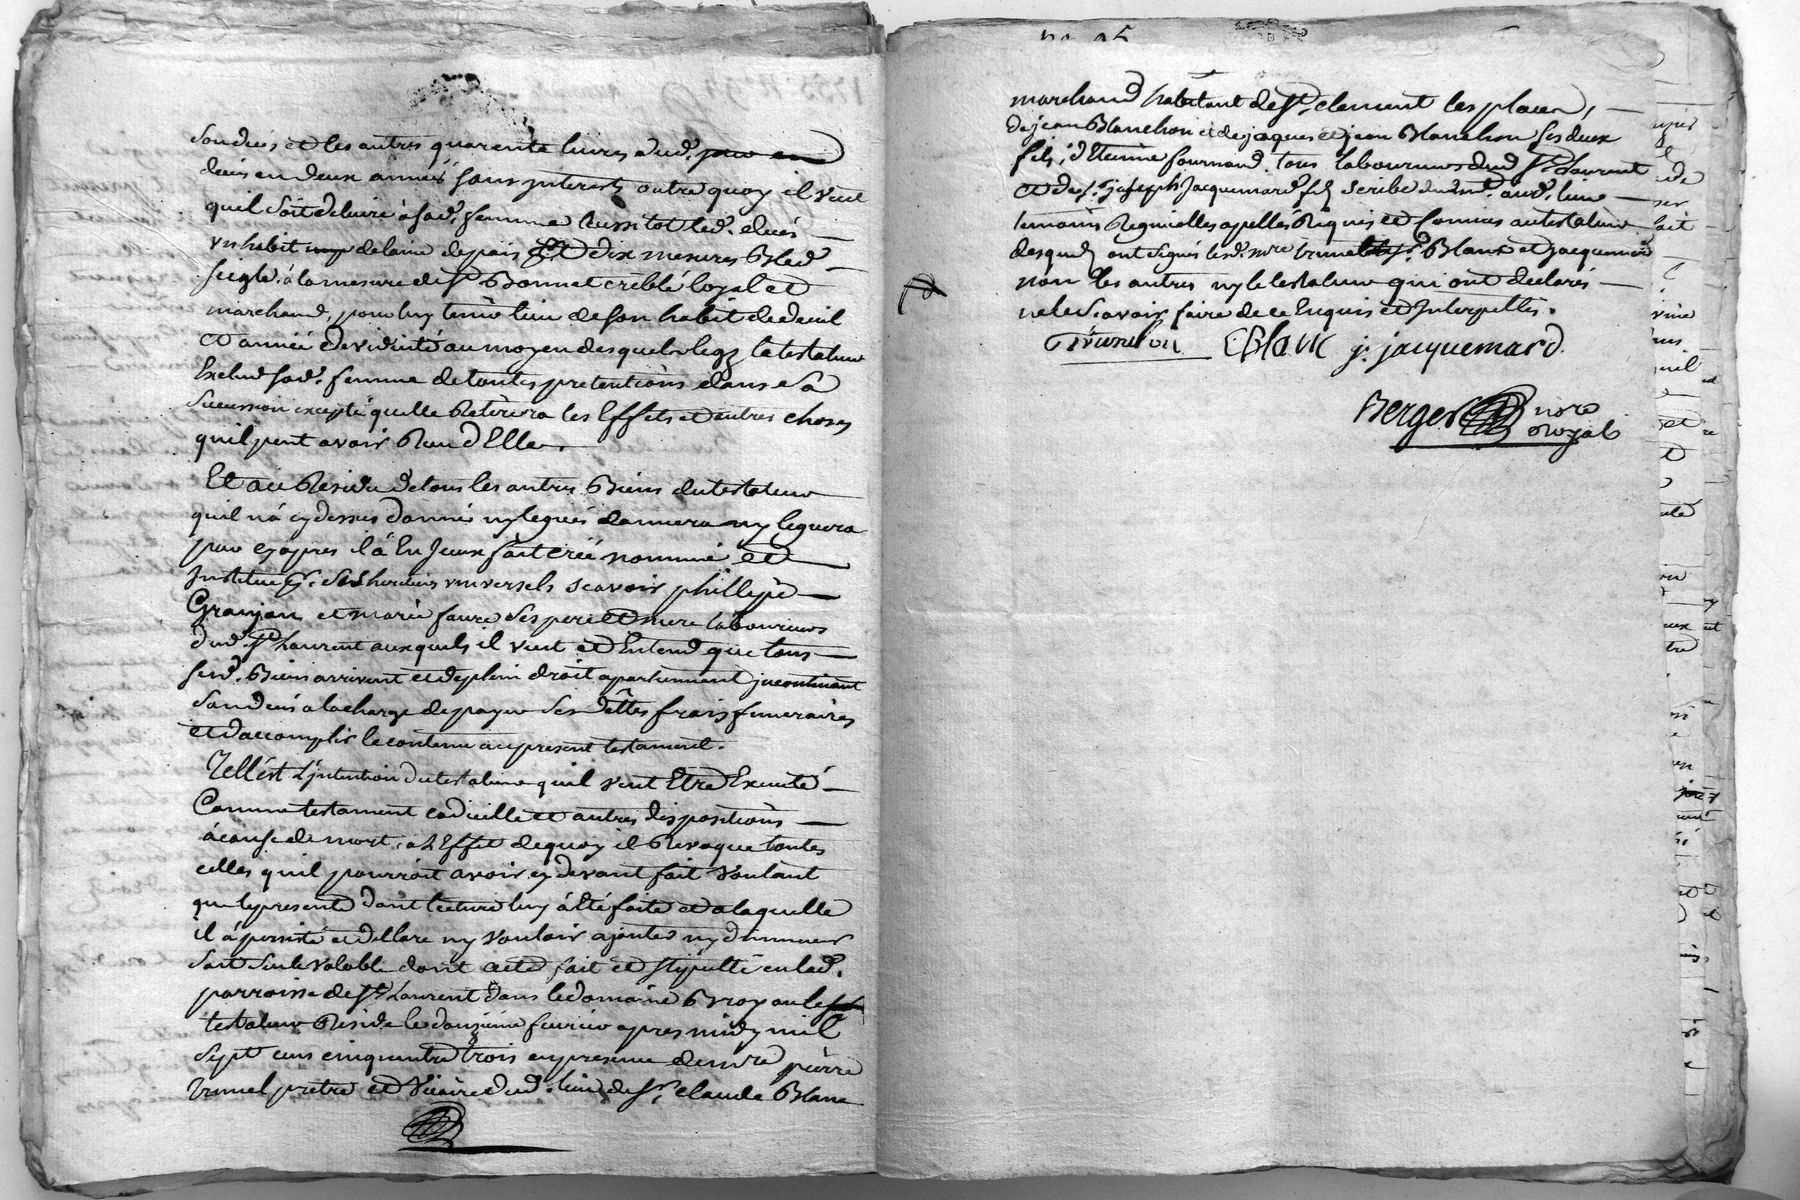 son deces et les autres quarente livres aud.
deces en deux années sans interests outre quoy il veut
quil soit delivré à sad. femme aussitot led. deces
un habit de laine de païs et dix mesures Bled
seigle à la mesure de St Bonnet criblé loyal et
marchand, pour luy tenir lieu de son habit de deuil
et année de viduité au moyen desquels legz le testateur
Exclud sad. femme de toutes pretentions dans sa
succession excepté quelle Retirera les Effets et autres choses
quil peut avoir Receu d'Elle.
Et au Residu de tous les autres Biens du testateur
quil n'a cy dessus donnés ny legués donnera ny leguera
pour cy apres il à fait créé nommé et
Institué ses heritiers universels scavoir phillipe
Granjon et marie faure ses pere et mere laboureurs
dud. St Laurent auxquels il veut et Entend que tous
sesd. Biens arrivent et de plein droit apartiennent incontinant
son deces a la charge de payer ses dettes frais funeraires
et d'accomplir le contenu au present testament.
Tell'est L'intention du testateur quil veut Etre Executé
Comme testament codicille et autres dispositions
à cause de mort, a L'Effet de quoy il Revoque toutes
celles quil pourroit avoir cy devant fait voulant
que le present dont lecture luy à Eté faite et a laquelle
il à persisté et declare ny vouloir ajouter ny diminuer
soit seule valable dont acte fait et stipullé en lad.
parroisse de St Laurent dans le domaine ou le
testateur Reside le douzieme fevrier apres midy mil
sept cens cinquante trois en presence de mre pierre
brunel pretre et vicaire dud. lieu de Sr. claude Blanc
marchand habitant de St clement les places,
de jean Blanchon et de jaques et jean Blanchon ses deux
fils, d'Etienne fournand tous laboureurs dud St Laurent
et de Sr. joseph Jacquemard fils scribe dud lieu
temoins Requis et Connus au testateur
desquels ont signés lesd. mre brunel Sr. Blanc et Jacquemard
non les autres ny le testateur qui ont declarés
ne le scavoir faire de ce Enquis et Interpellés.
CBlanc j. jacquemard.
Berger nore
Royal